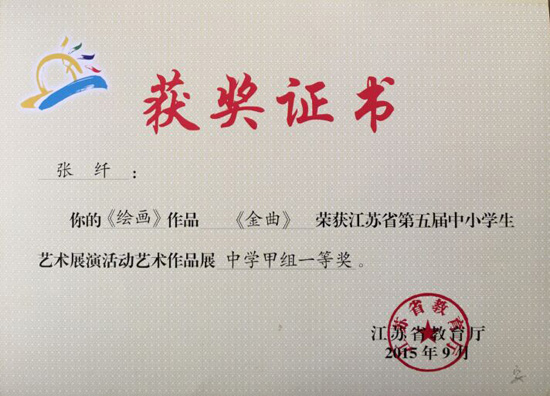 获奖证书
张 纤 :
你的《绘画》作品 《金曲》 荣获江苏省第五届中小学生
艺术展演活动艺术作品展 中学甲组一等奖 。
江苏省教育厅
江苏省教育厅
2015 年 9 月